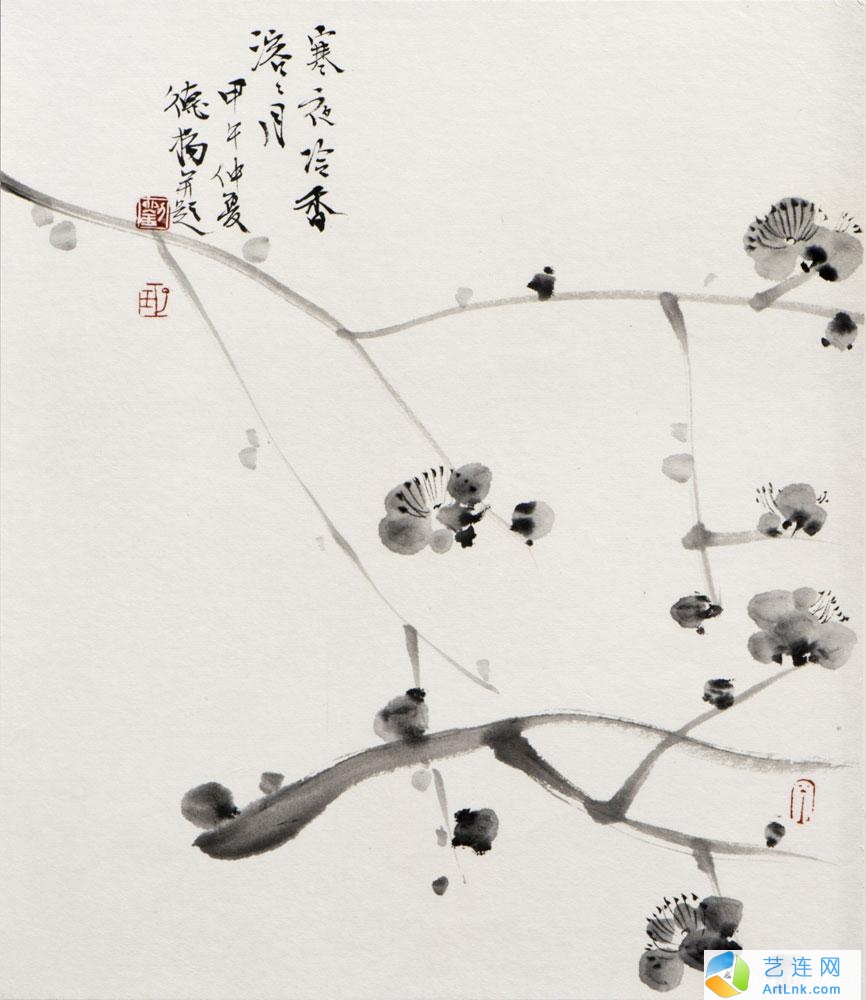 寒夜冷香
溶々月
甲午仲夏
德揚并题
劉
艺连网
ArtLnk.com